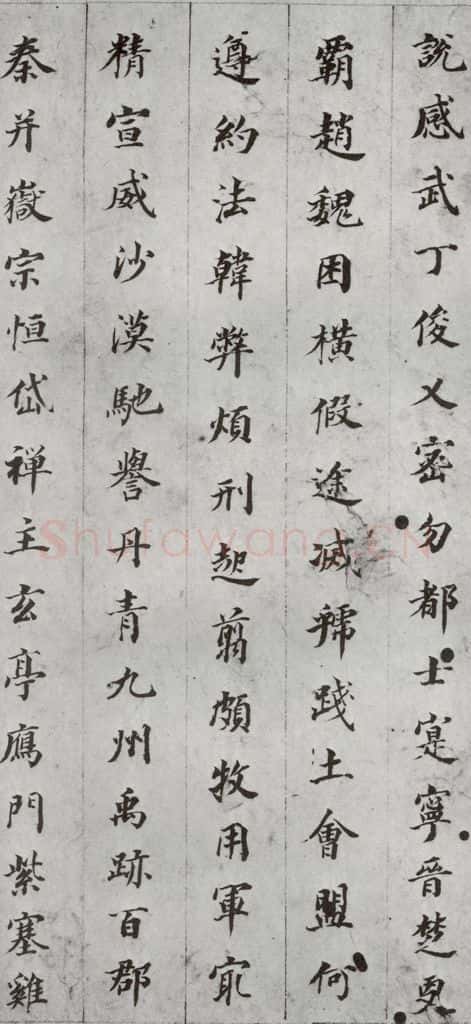 說感武丁俊乂密勿都士寔寧晉楚更
霸趙魏困橫假途滅虢踐土會盟何
遵約法韓弊煩刑起翦頗牧用軍㝡
精宣威沙漠馳譽丹青九州禹跡百郡
秦并嶽宗恒岱禪主玄亭鴈門紫塞雞
Shufawang.CN